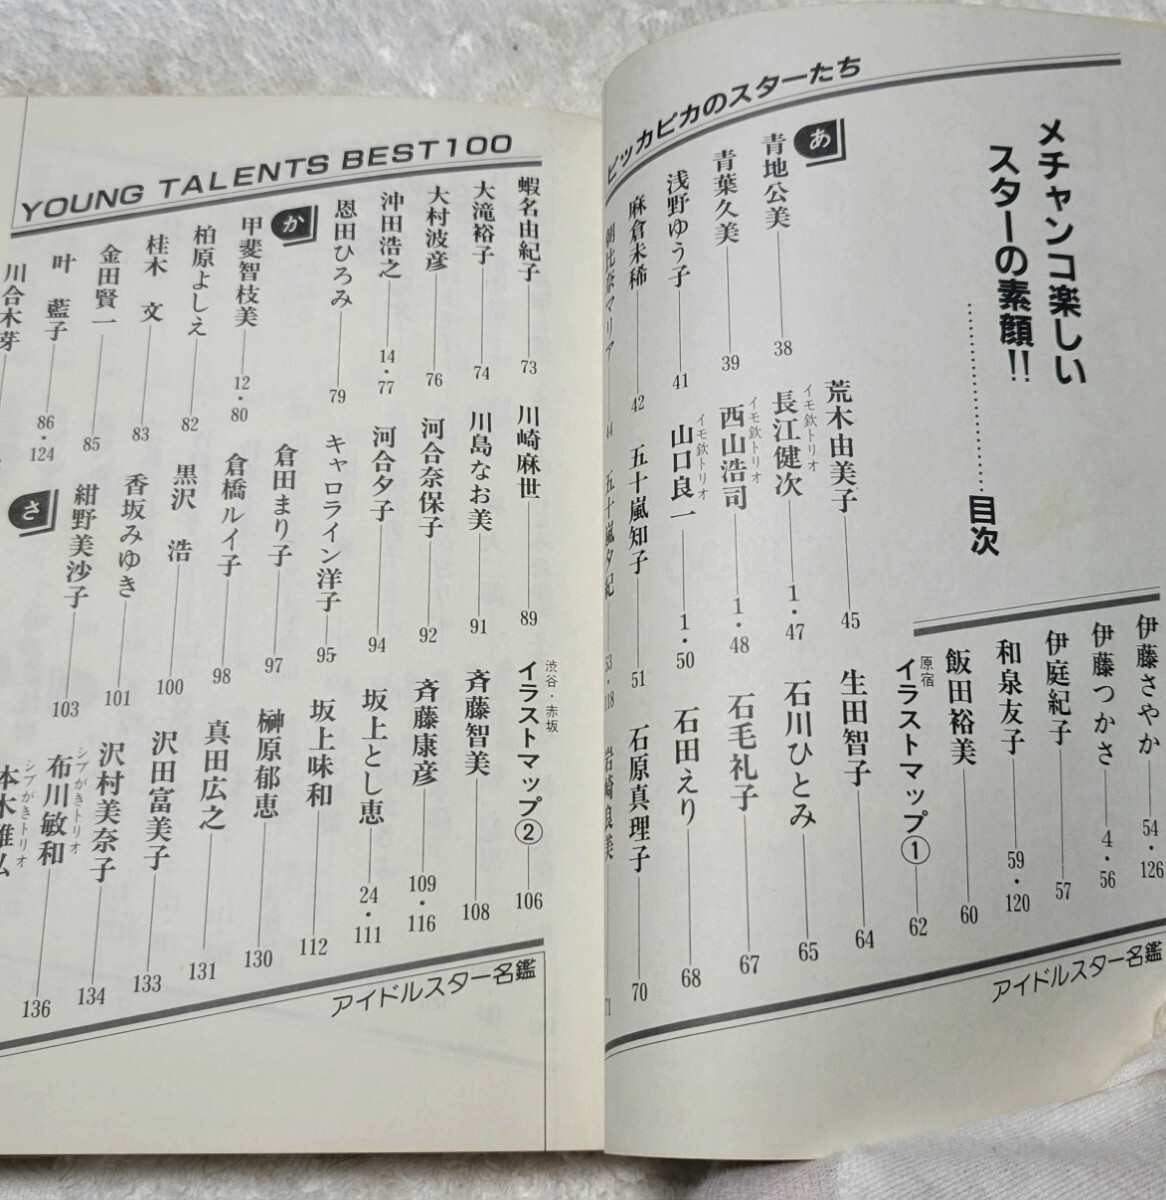 メチャンコ楽しい
スターの素顔!!
目次
ピッカピカのスターたち
あ
青地公美 38
青葉久美 39
浅野ゆう子 41
麻倉未稀 42
朝比奈マリア 44
荒木由美子 45
イモ欽トリオ
長江健次 1・47
イモ欽トリオ
西山浩司 1・48
イモ欽トリオ
山口良一 1・50
五十嵐知子 51
五十嵐夕紀 53・118
伊藤さやか 54・126
伊藤つかさ 4・56
伊庭紀子 57
和泉友子 59・120
飯田裕美 60
原宿
イラストマップ① 62
生田智子 64
石川ひとみ 65
石毛礼子 67
石田えり 68
石原真理子 70
岩崎良美 71
アイドルスター名鑑
YOUNG TALENTS BEST100
蝦名由紀子 73
大滝裕子 74
大村波彦 76
沖田浩之 14・77
恩田ひろみ 79
か
甲斐智枝美 12・80
柏原よしえ 82
桂木文 83
金田賢一 85
叶藍子 86・124
川合木芽
川崎麻世 89
川島なお美 91
河合奈保子 92
河合夕子 94
キャロライン洋子 95
倉田まり子 97
倉橋ルイ子 98
黒沢浩 100
香坂みゆき 101
紺野美沙子 103
さ
渋谷・赤坂
イラストマップ② 106
斉藤智美 108
斉藤康彦 109・116
坂上とし恵 24・111
坂上味和 112
榊原郁恵 130
真田広之 131
沢田富美子 133
沢村美奈子 134
シブがきトリオ
布川敏和 136
シブがきトリオ
本木雅弘
アイドルスター名鑑